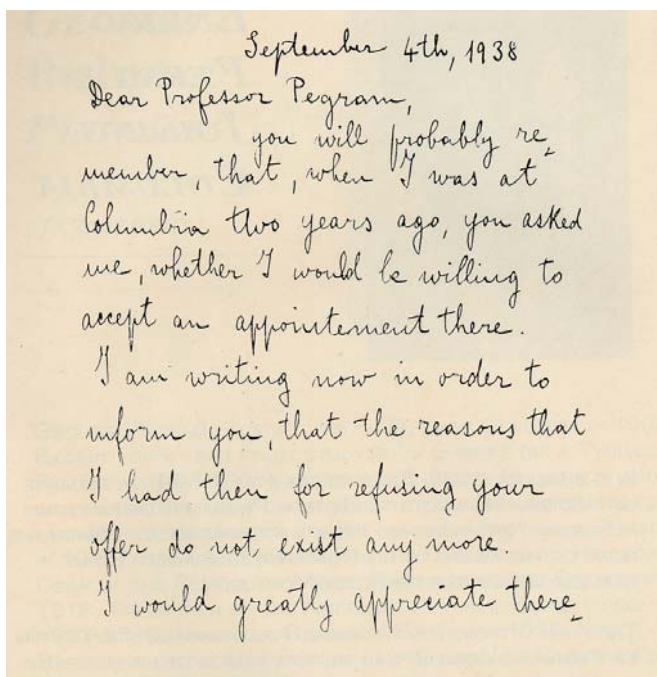 September 4th, 1938
Dear Professor Pegram,
you will probably re-
member, that, when I was at
Columbia two years ago, you asked
me, whether I would be willing to
accept an appointement there.
I am writing now in order to
inform you, that the reasons that
I had then for refusing your
offer do not exist any more.
I would greatly appreciate there-